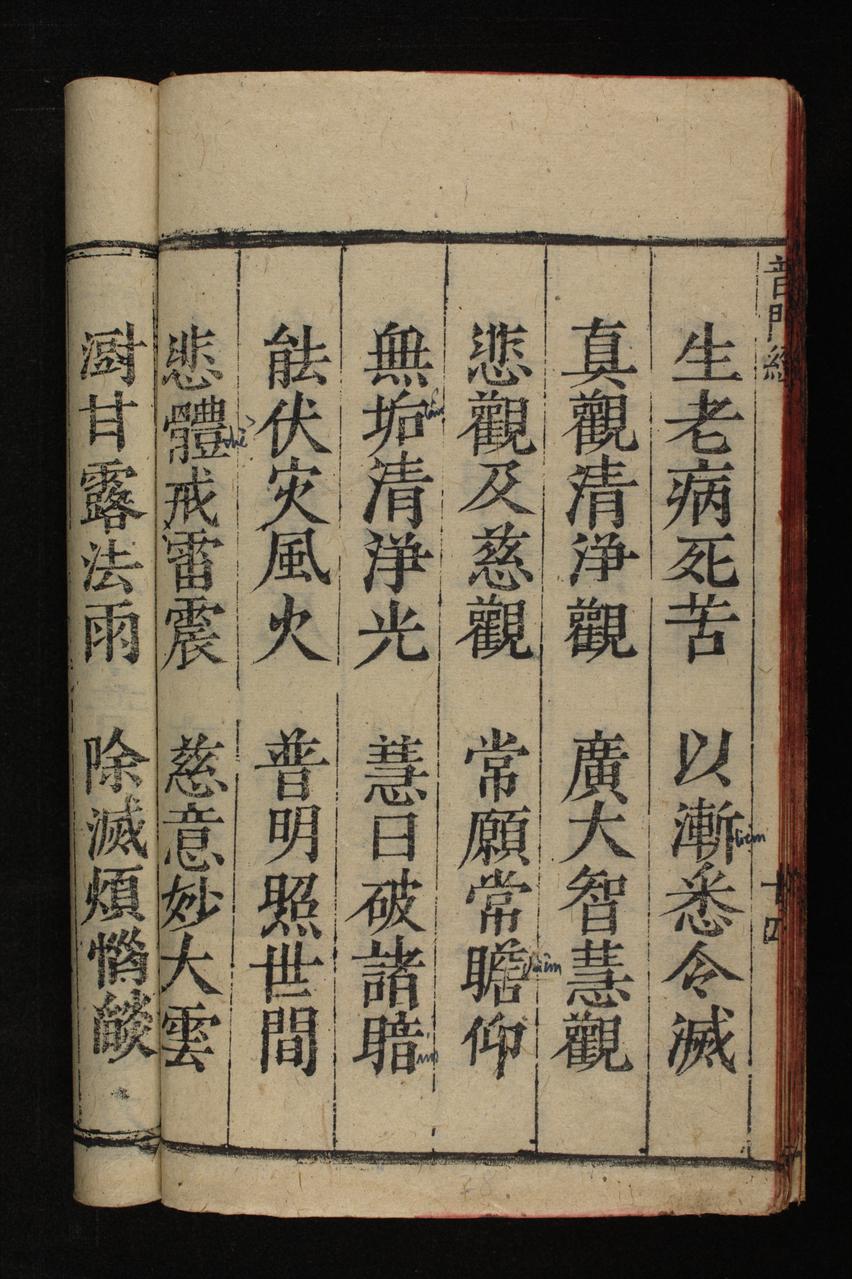 普門經
十四
生老病死苦 以漸悉令滅
真觀清淨觀 廣大智慧觀
悲觀及慈觀 常願常瞻仰
無垢清淨光 慧日破諸暗
能伏灾風火 普明照世間
悲體戒雷震 慈意妙大雲
澍甘露法雨 除滅煩惱燄